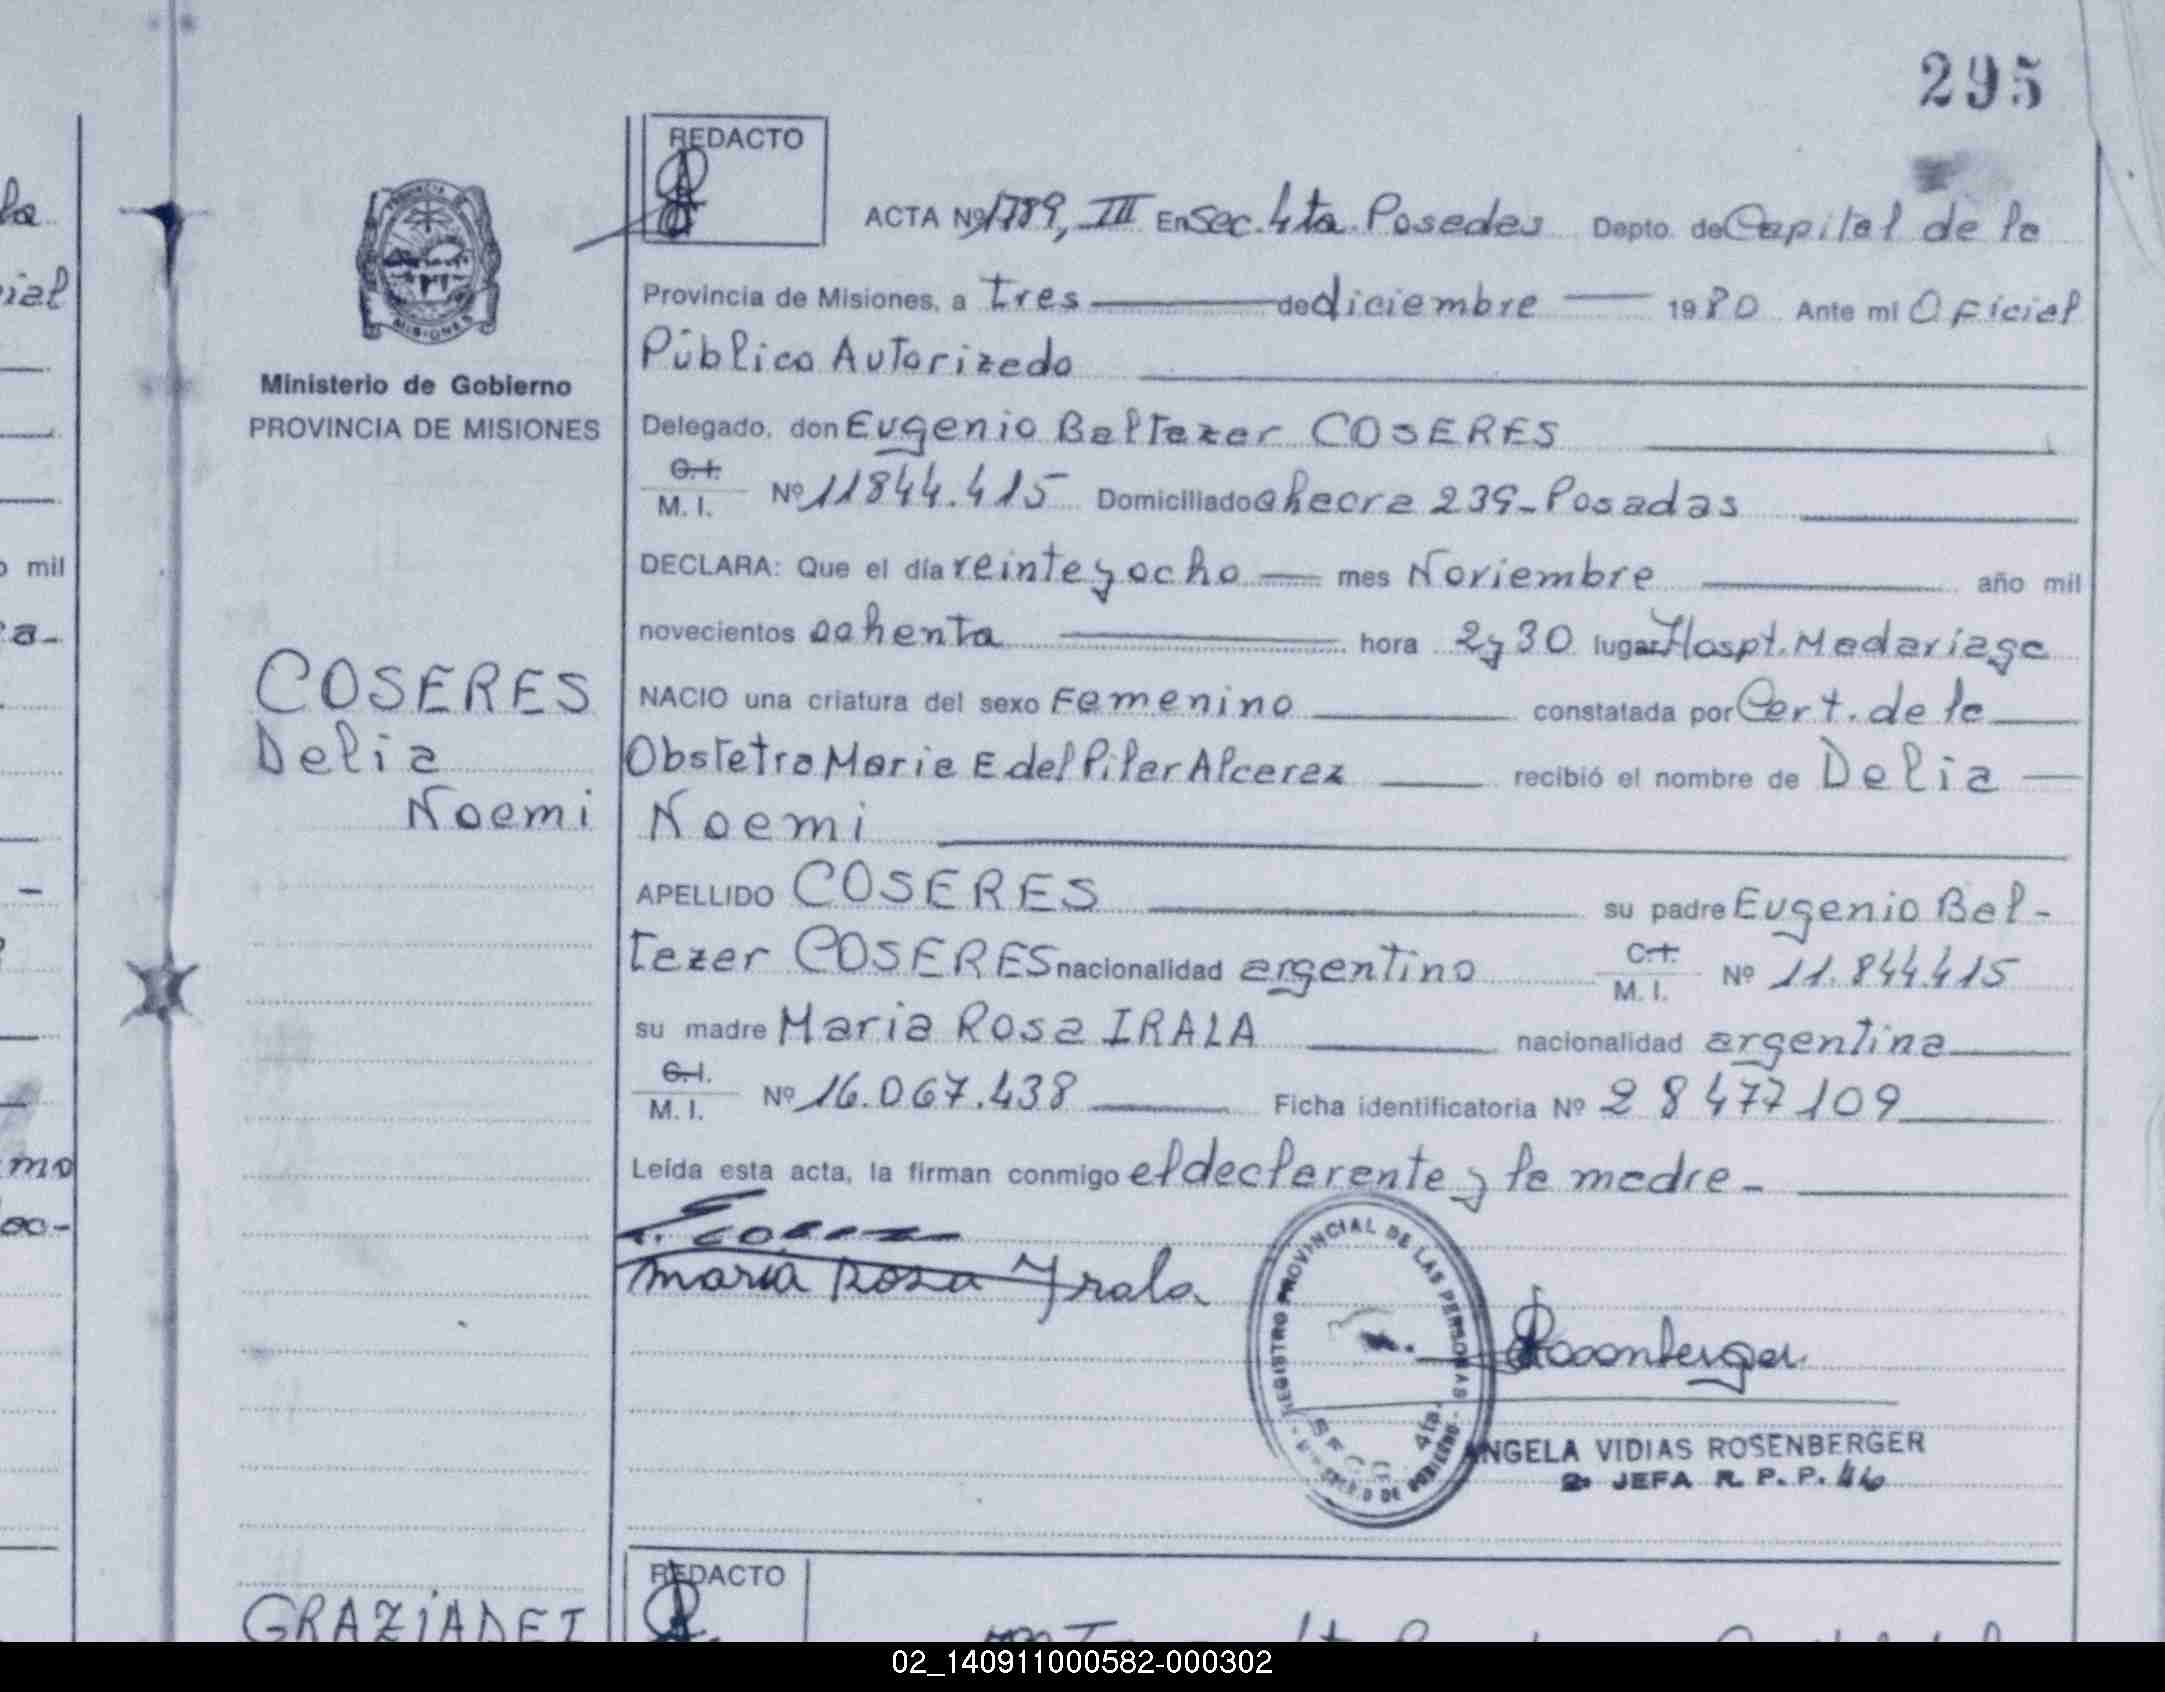 295
REDACTO
ACTA Nº 1789, III En Sec. 4ta. Posadas Depto. de Capital de la
Provincia de Misiones, a tres de diciembre 1980 Ante mi Oficial
Público Autorizado
Delegado, don Eugenio Baltazar COSERES
C.I.
M. I. Nº 11844.415 Domiciliado chacra 239_Posadas
DECLARA: Que el día veinte y ocho mes Noviembre año mil
novecientos ochenta hora 2 y 30 lugar Hospt. Madariaga
NACIO una criatura del sexo Femenino constatada por Cert. de la
Obstetra Maria E del Pilar Alcaraz recibió el nombre de Delia
Noemi
APELLIDO COSERES su padre Eugenio Bal-
tazar COSERES nacionalidad argentino C.I. M. I. Nº 11.844.415
su madre Maria Rosa IRALA nacionalidad argentina
C.I.
M. I. Nº 16.067.438 Ficha identificatoria Nº 28477109
Leída esta acta, la firman conmigo el declarante y la madre_
Maria Rosa Yrala
Rosenberger
REGISTRO PROVINCIAL DE LAS PERSONAS
SECC. 4ta.
MINISTERIO DE GOBIERNO
ANGELA VIDIAS ROSENBERGER
2º JEFA R. P. P.
PROVINCIA
MISIONES
Ministerio de Gobierno
PROVINCIA DE MISIONES
COSERES
Delia
Noemi
REDACTO
GRAZIADEI
la
ial
o mil
a-
mo
oo-
02_140911000582-000302